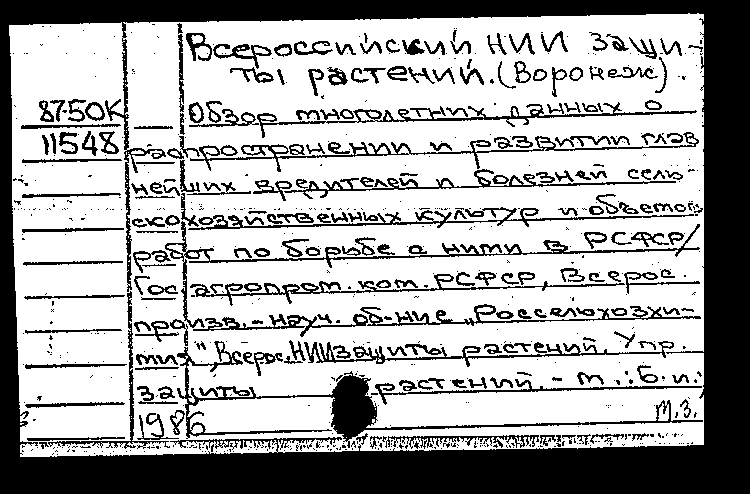 Всероссийский НИИ защи-
ты растений. (Воронеж).
87-50К Обзор многолетних данных о
11548 распространении и развитии глав
нейших вредителей и болезней сель-
скохозяйственных культур и объемов
работ по борьбе с ними в РСФСР/
Гос. агропром. ком. РСФСР, Всерос.
произв.-науч. об-ние „Россельхозхи-
мия", Всерос. НИИ защиты растений. Упр.
защиты растений. - М.: Б.и.;
1986 т.з.